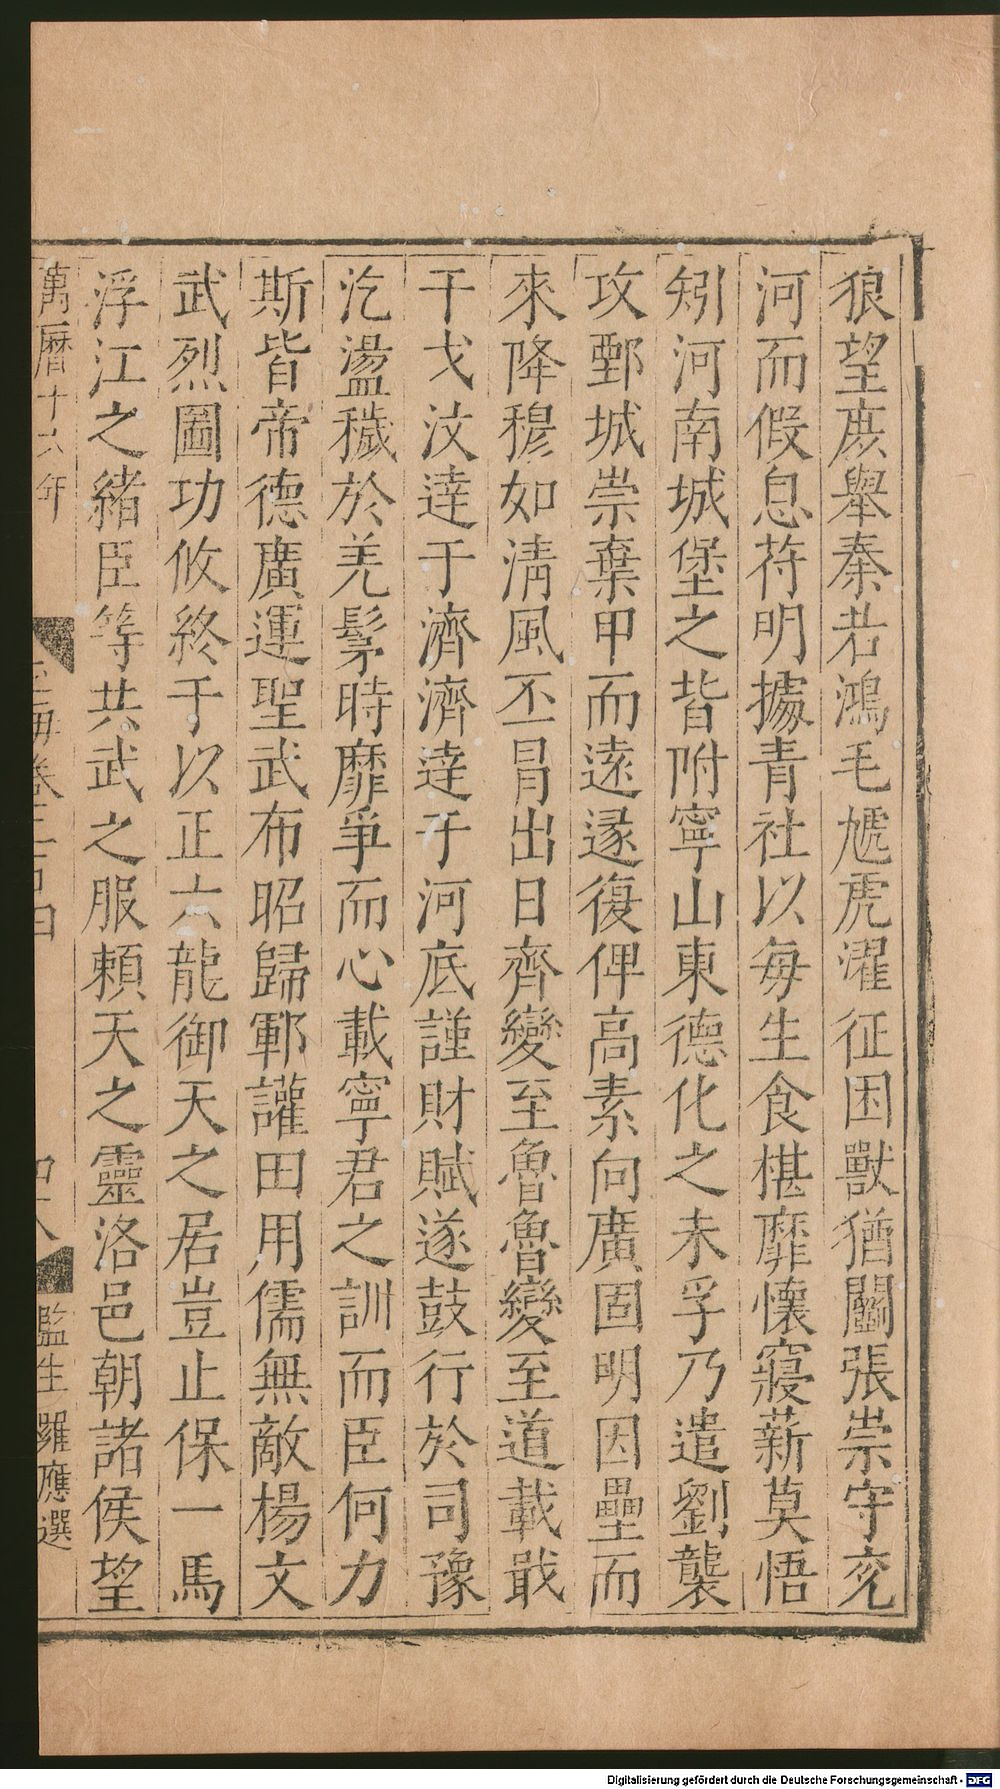 狼望庻舉秦若鴻毛虓虎濯征困獸猶鬬張崇守兖
河而假息苻明據青社以每生食椹靡懷寢薪莫悟
矧河南城堡之皆附寧山東德化之未孚乃遣劉襲
攻鄄城崇棄甲而遠遂復俾高素向廣固明因壘而
來降穆如清風丕冒出日齊變至魯魯變至道載戢
干戈汶達于濟濟達于河底謹財賦遂鼓行於司豫
汔盪穢於羌髳時靡爭而心載寧君之訓而臣何力
斯皆帝德廣運聖武布昭歸鄆讙田用儒無敵楊文
武烈圖功攸終于以正六龍御天之居豈止保一馬
浮江之緒臣等共武之服頼天之靈洛邑朝諸侯望
萬曆十六年
卷二百四
四十八
監生羅應選
Digitalisierung gefördert durch die Deutsche Forschungsgemeinschaft - DFG